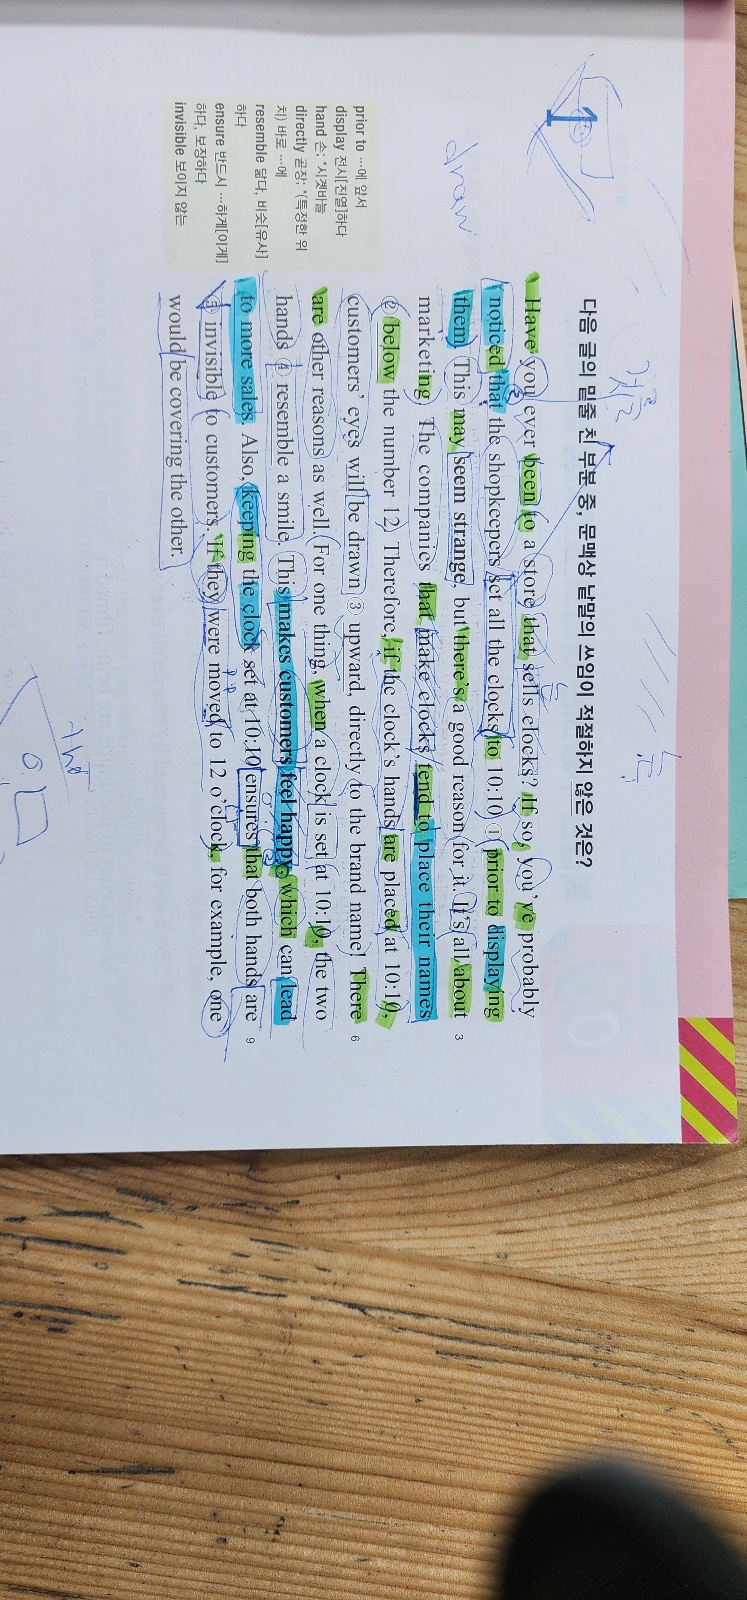 1
다음 글의 밑줄 친 부분 중, 문맥상 낱말의 쓰임이 적절하지 않은 것은?
Have you ever been to a store that sells clocks? If so, you've probably
noticed that the shopkeepers set all the clocks to 10:10 ① prior to displaying
them. This may seem strange, but there's a good reason for it. It's all about
3
marketing. The companies that make clocks tend to place their names
② below the number 12. Therefore, if the clock's hands are placed at 10:10,
customers' eyes will be drawn ③ upward, directly to the brand name! There
6
are other reasons as well. For one thing, when a clock is set at 10:10, the two
hands ④ resemble a smile. This makes customers feel happy, which can lead
to more sales. Also, keeping the clock set at 10:10 ensures that both hands are
9
⑤ invisible to customers. If they were moved to 12 o'clock, for example, one
would be covering the other.
prior to …에 앞서
display 전시[진열]하다
hand 손; *시곗바늘
directly 곧장; *(특정한 위
치) 바로 …에
resemble 닮다, 비슷[유사]
하다
ensure 반드시 …하게[이게]
하다, 보장하다
invisible 보이지 않는
draw